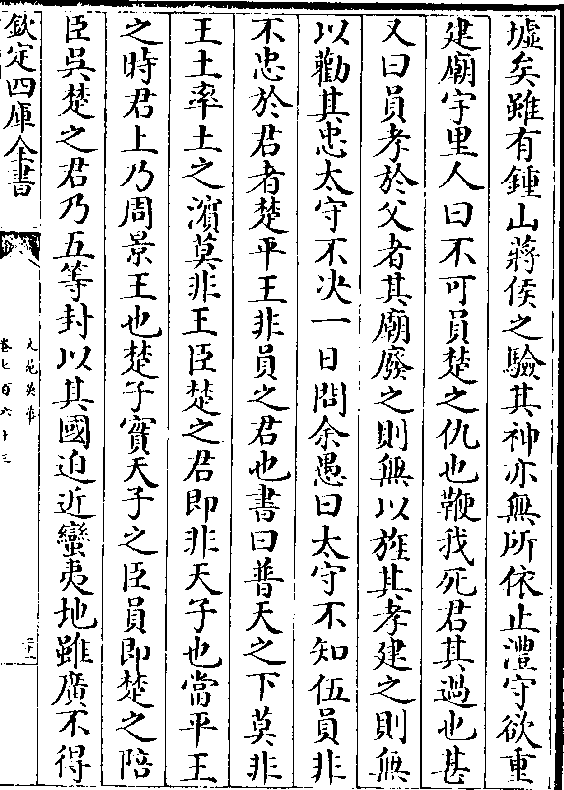 墟矣雖有鍾山蔣侯之驗其神亦無所依止澧守欲重
建廟宇里人曰不可員楚之仇也鞭我死君其過也甚
又曰員孝於父者其廟廢之則無以旌其孝建之則無
以勸其忠太守不决一日問余愚曰太守不知伍員非
不忠於君者楚平王非員之君也書曰普天之下莫非
王土率土之濵莫非王臣楚之君即非天子也當平王
之時君上乃周景王也楚子實天子之臣員即楚之陪
臣吳楚之君乃五等封以其國迫近蠻夷地雖廣不得
欽定四庫全書
文苑英華
卷七百六十三